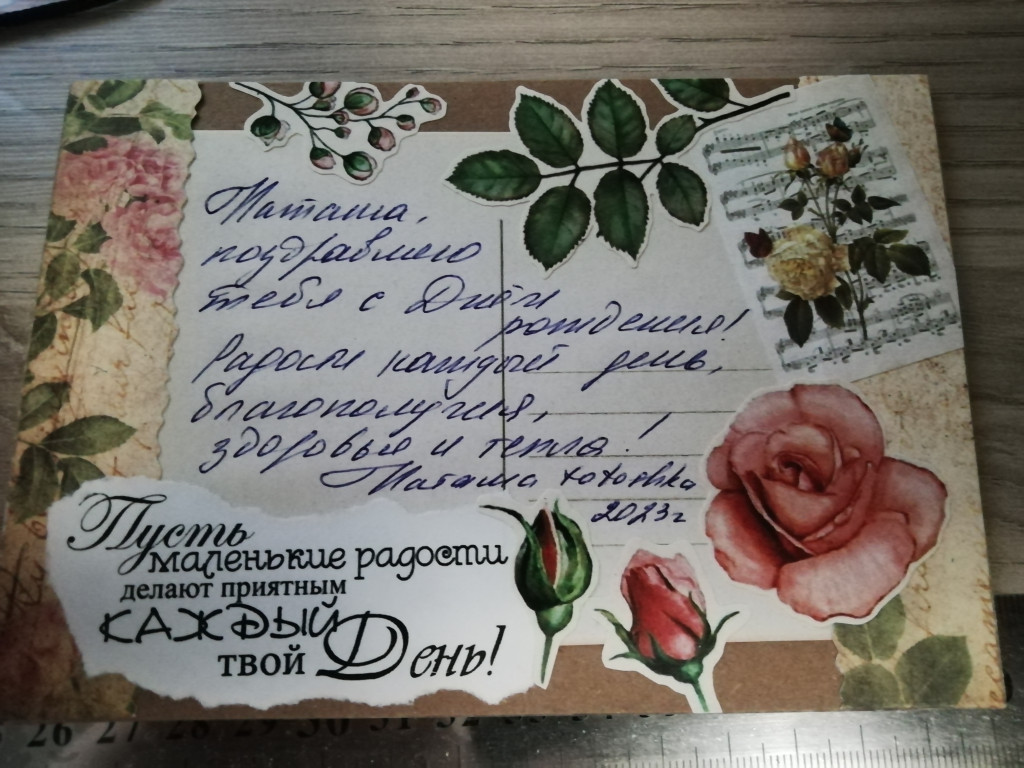 Наташа,
поздравляю
тебя с Днём
рождения!
Радости каждый день,
благополучия,
здоровья и тепла!
Наташа
2023г
Пусть
маленькие радости
делают приятным
каждый
твой День!
26 27 28 29 30 31 32